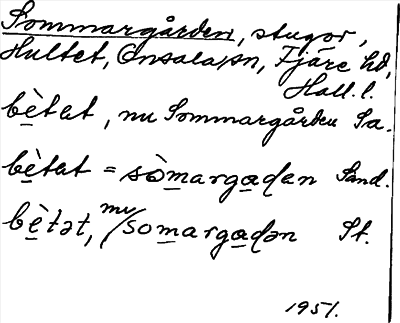 Sommargården, stugor,
Hultet, Onsala sn, Fjäre hd,
Hall. l.
bètet, nu Sommargården Sa.
bètat = sòmargaden Sand.
bètət, nu/somargadən St.
1951.